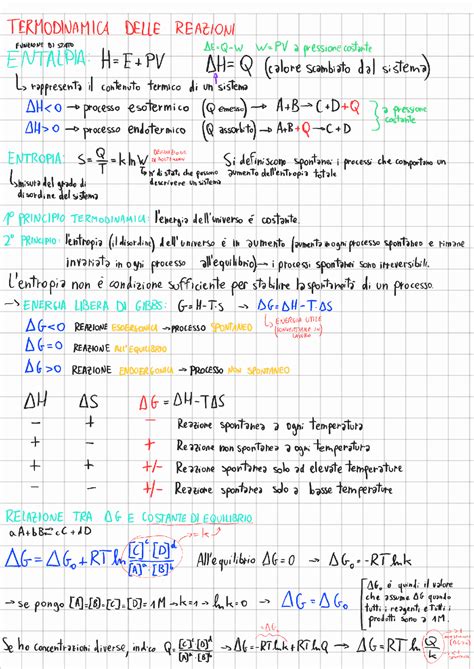 TERMODINAMICA DELLE REAZIONI
FUNZIONI DI STATO
ΔE=Q-W W=PV a pressione costante
ENTALPIA: H=E+PV ΔH=Q (calore scambiato dal sistema)
↳ rappresenta il contenuto termico di un sistema
ΔH<0 → processo esotermico (Q emesso) → A+B→C+D+Q
ΔH>0 → processo endotermico (Q assorbito) → A+B+Q→C+D
a pressione costante
ENTROPIA: S=Q/T=k ln W
n° di stati che possono descrivere un sistema
↳ misura del grado di disordine del sistema
Si definiscono spontanei i processi che comportano un aumento dell'entropia totale
1° PRINCIPIO TERMODINAMICA: l'energia dell'universo è costante.
2° PRINCIPIO: l'entropia (il disordine) dell'universo è in aumento (aumenta in ogni processo spontaneo e rimane
invariata in ogni processo all'equilibrio) → i processi spontanei sono irreversibili.
L'entropia non è condizione sufficiente per stabilire la spontaneità di un processo.
→ ENERGIA LIBERA DI GIBBS: G=H-T·S → ΔG=ΔH-T·ΔS
↳ ENERGIA UTILE (CONVERTIBILE IN LAVORO)
ΔG<0 REAZIONE ESOERGONICA → PROCESSO SPONTANEO
ΔG=0 REAZIONE ALL'EQUILIBRIO
ΔG>0 REAZIONE ENDOERGONICA → PROCESSO NON SPONTANEO
ΔH ΔS ΔG=ΔH-TΔS
- + - Reazione spontanea a ogni temperatura
+ - + Reazione non spontanea a ogni temperatura
+ + +/- Reazione spontanea solo ad elevate temperature
- - +/- Reazione spontanea solo a basse temperature
RELAZIONE TRA ΔG E COSTANTE DI EQUILIBRIO
aA+bB⇌cC+dD
=k
ΔG=ΔG₀+RT ln [C]ᶜ·[D]ᵈ/[A]ᵃ·[B]ᵇ All'equilibrio ΔG=0 → ΔG₀=-RT ln k
→ se pongo [A]=[B]=[C]=[D]=1M → k=1 → ln k=0 → ΔG=ΔG₀
ΔG₀ è quindi il valore
che assume ΔG quando
tutti i reagenti e tutti i
prodotti sono a 1M
Se ho concentrazioni diverse, indico Q=[C]ᶜ[D]ᵈ/[A]ᵃ[B]ᵇ → ΔG=-RT ln k+RT ln Q → ΔG=RT ln Q/k